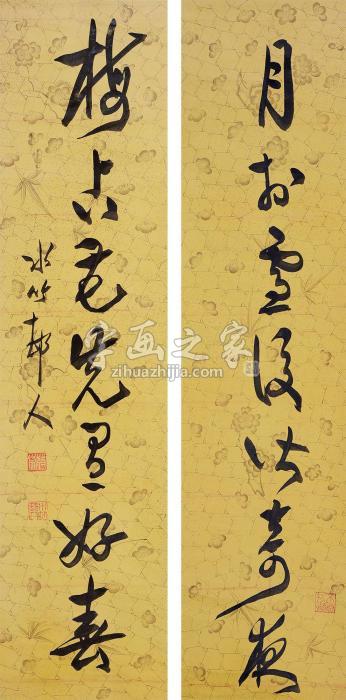 月於雪後皆奇夜
梅占花先好春
水竹邨人
字画之家
zihuazhijia.com